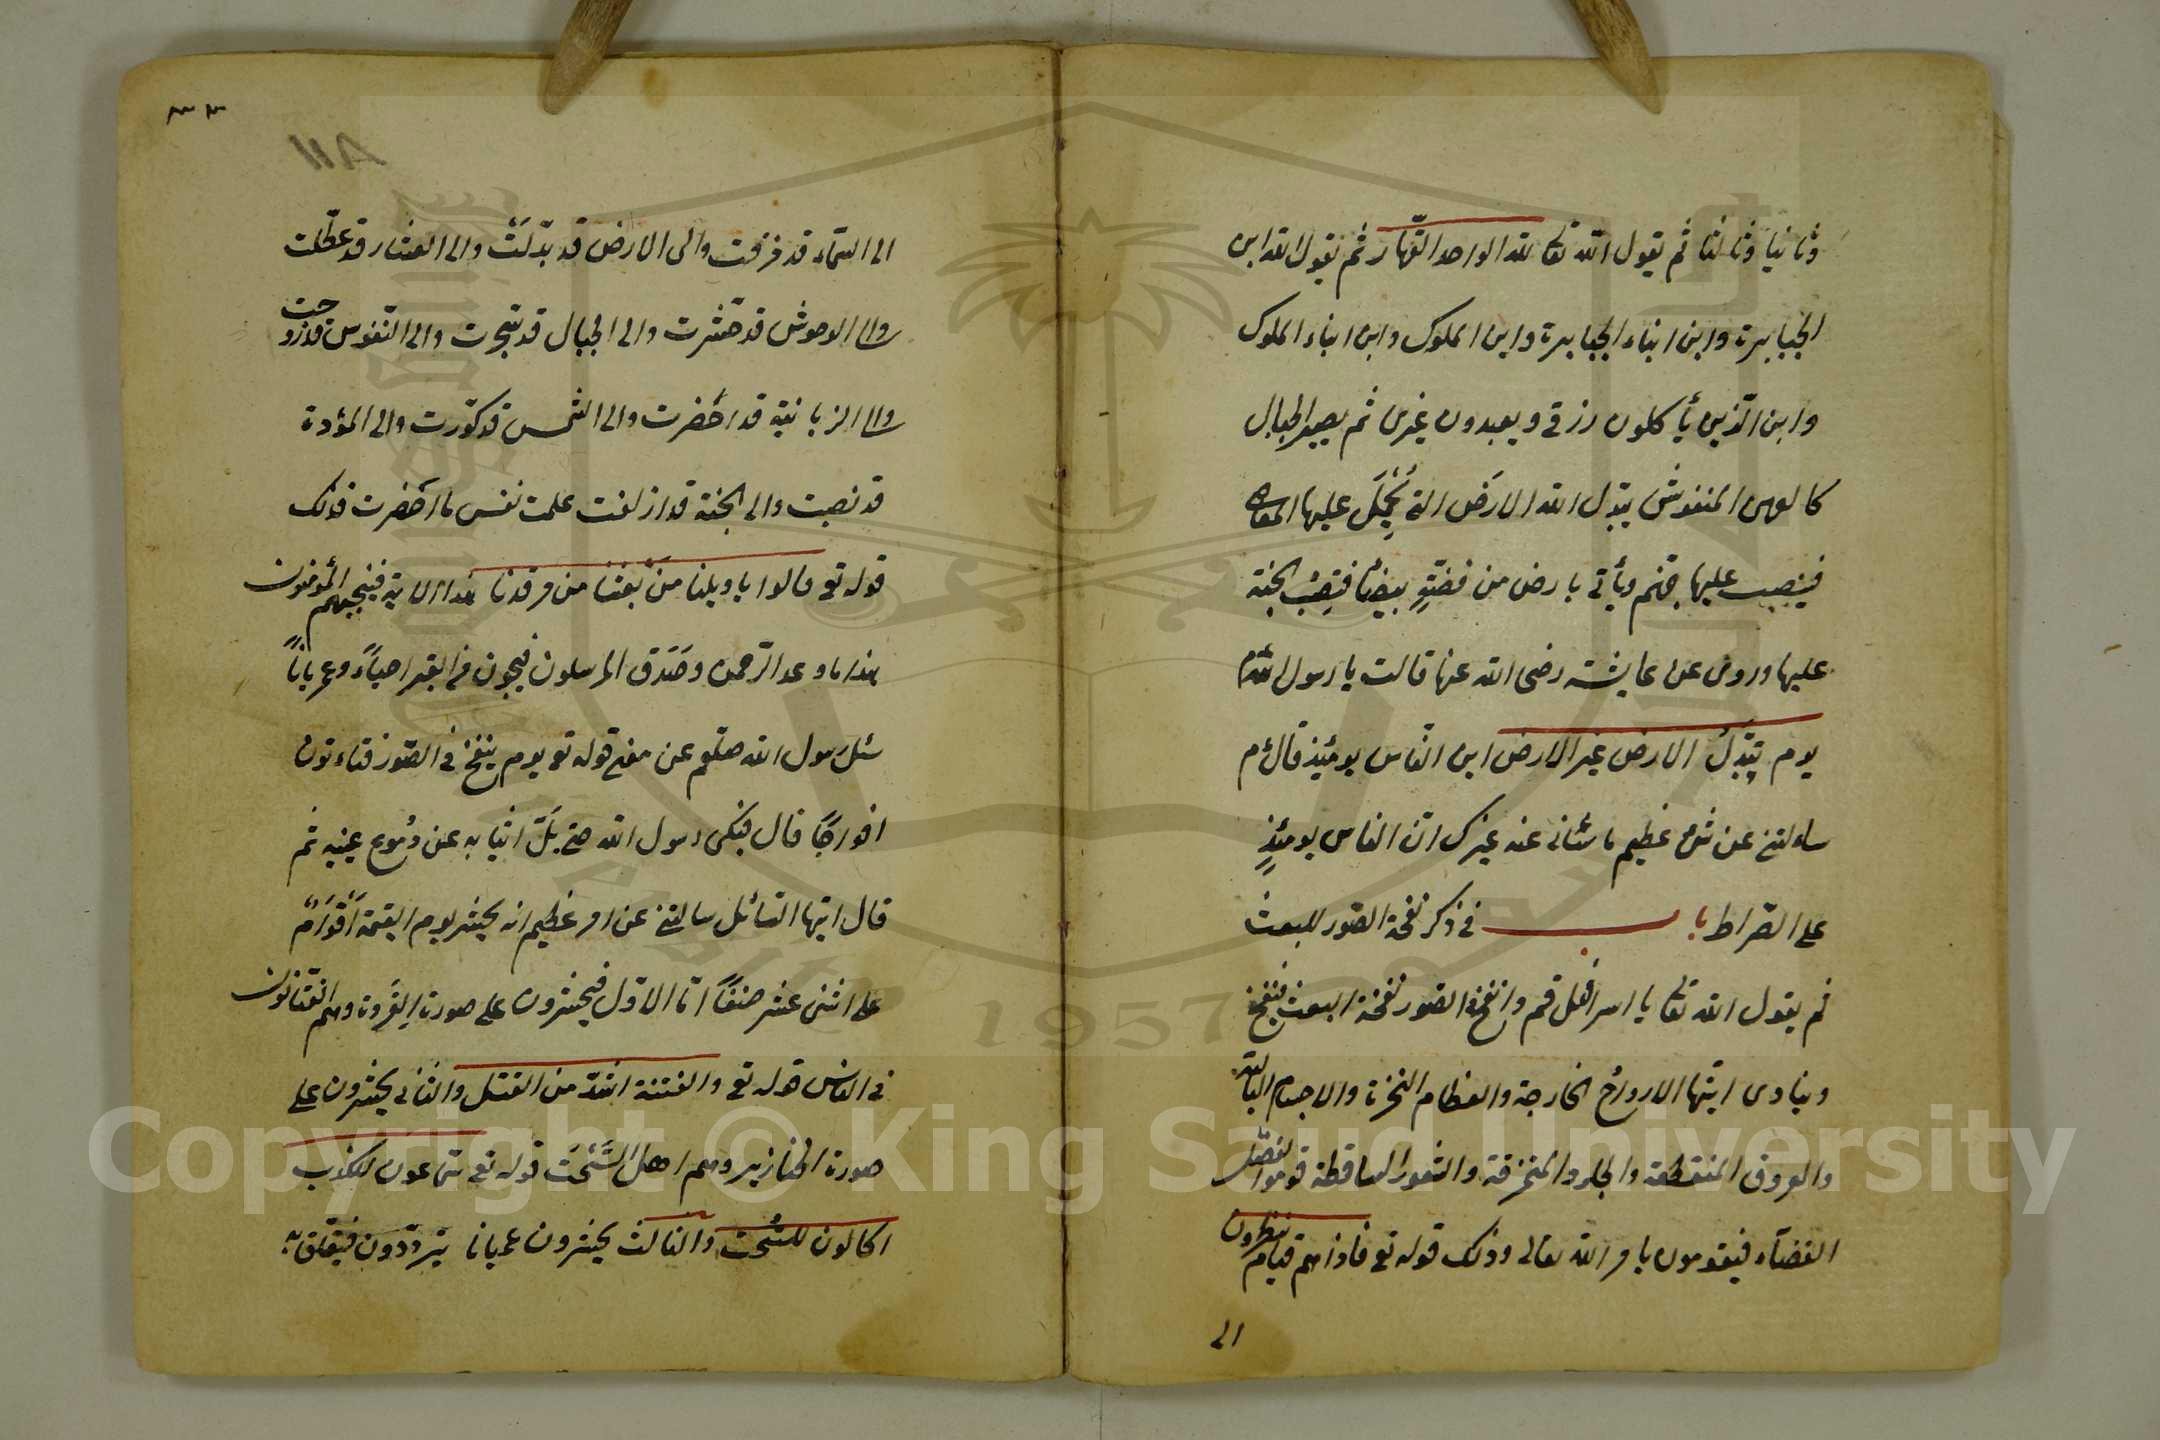 وثانيا وثالثا ثم يقول الله تعالى لله الواحد القهار ثم يقول الله اين
الجبابرة واين ابناء الجبابرة واين الملوك واين ابناء الملوك
واين الذين يأكلون رزقي ويعبدون غيري ثم يصير الجبال
كالعهن المنفوش يبدل الله الارض التي عمل عليها المعاصي
فينصب عليها جهنم ويأتي بارض من فضة بيضاء فينصب الجنة
عليها وروى عن عايشة رضى الله عنها قالت يا رسول الله
يوم تبدل الارض غير الارض اين الناس يومئذ قال م
ساءلتنى عن شئ عظيم ما سئلنى عنه غيرك ان الناس يومئذ
على الصراط باب فى ذكر نفخة الصور للبعث
ثم يقول الله تعالى يا اسرافيل قم وانفخ الصور نفخة البعث فينفخ
وينادى ايتها الارواح الخارجة والعظام النخرة والاجسام البالية
والعروق المنقطعة والجلود المتخرقة والشعور الساقطة قوموا لفصل
القضاء فيقومون بامر الله تعالى وذلك قوله تع فاذا هم قيام ينظرون
الى
٣٣
٨١١
الى السماء قد فرقت والى الارض قد بدّلت والى العشار قد عطّلت
والى الوحوش قد حشرت والى الجبال قد سجرت والى النّفوس قد زوجت
والى الزبانية قد احضرت والى الشمس قد كوّرت والى المؤدة
قد نصبت والى الجنة قد ازلفت علمت نفس ما احضرت فذلك
قوله تع قالوا يا ويلنا من بعثنا من مرقدنا هذا الاية فيجيبهم المؤمنون
هذا ما وعد الرّحمن وصدق المرسلون فيخرجون من القبر احياء وعريانا
سئل رسول الله صلعم عن معنى قوله تع يوم ينفخ فى الصّور فتاءتون
افواجا قال فبكى رسول الله حتى بلّ اثيابه عن دموع عينيه ثم
قال ايّها السّائل سالتنى عن امر عظيم انه يحشر يوم القيمة اقوام
على اثنى عشر صنفا امّا الاوّل فيحشرون على صورة القردة وهم الفتّانون
فى الناس قوله تع والفتنة اشدّ من القتل والثانى يحشرون على
صورة الخنازير وهم اهل السّحت قوله تع سمّاعون للكذب
اكالون للسّحت والثالث يحشرون عميانا يتردّدون فيتعلق به